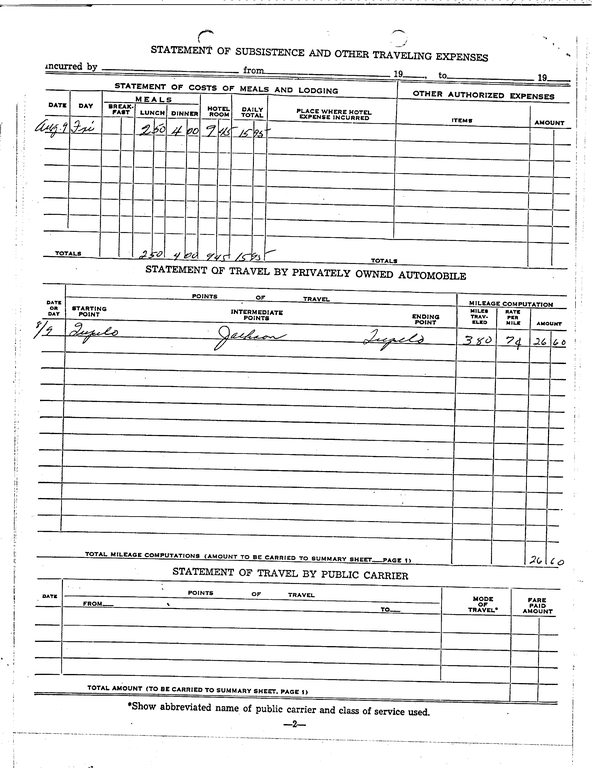 STATEMENT OF SUBSISTENCE AND OTHER TRAVELING EXPENSES
incurred by from 19 , to 19
STATEMENT OF COSTS OF MEALS AND LODGING OTHER AUTHORIZED EXPENSES
DATE DAY MEALS HOTEL ROOM DAILY TOTAL PLACE WHERE HOTEL EXPENSE INCURRED ITEMS AMOUNT
BREAK-FAST LUNCH DINNER
Aug. 9 Fri 2 50 4 00 9 45 15 95
TOTALS 2 50 4 00 9 45 15 95 TOTALS
STATEMENT OF TRAVEL BY PRIVATELY OWNED AUTOMOBILE
DATE OR DAY POINTS OF TRAVEL MILEAGE COMPUTATION
STARTING POINT INTERMEDIATE POINTS ENDING POINT MILES TRAV-ELED RATE PER MILE AMOUNT
8/9 Tupelo Jackson Tupelo 380 7¢ 26 60
TOTAL MILEAGE COMPUTATIONS (AMOUNT TO BE CARRIED TO SUMMARY SHEET—PAGE 1) 26 60
STATEMENT OF TRAVEL BY PUBLIC CARRIER
DATE POINTS OF TRAVEL MODE OF TRAVEL* FARE PAID AMOUNT
FROM— TO—
TOTAL AMOUNT (TO BE CARRIED TO SUMMARY SHEET, PAGE 1)
*Show abbreviated name of public carrier and class of service used.
—2—